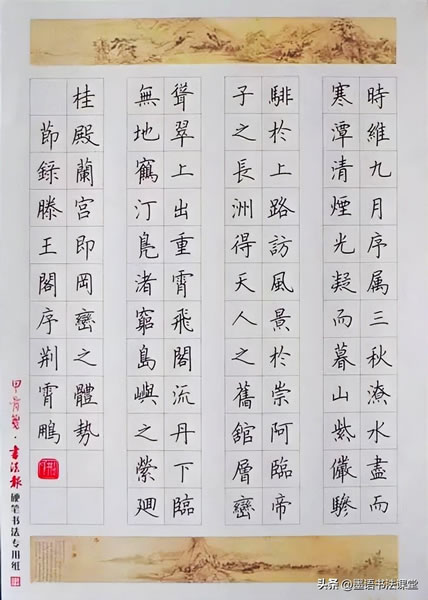 時維九月序属三秋潦水盡而
寒潭清煙光凝而暮山紫儼驂
騑於上路訪風景於崇阿臨帝
子之長洲得天人之舊舘層巒
聳翠上出重霄飛閣流丹下臨
無地鶴汀鳧渚窮島嶼之縈廻
桂殿蘭宫即岡巒之體勢
節録滕王閣序荆霄鵬
·書法報硬笔书法专用纸
头条 @墨语书法课堂